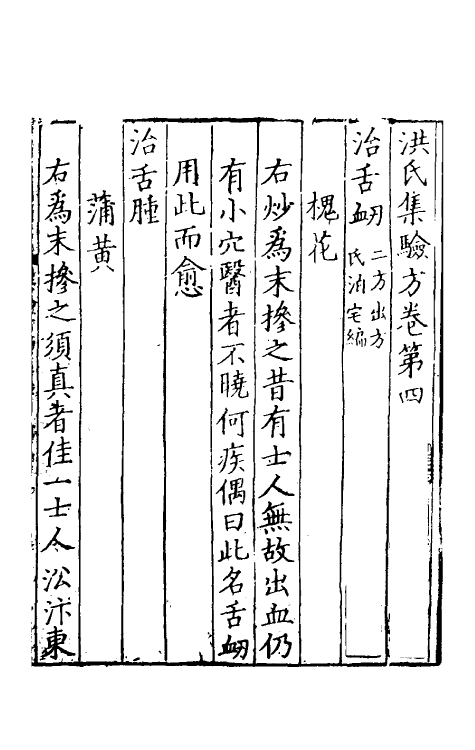 洪氏集驗方卷第四
治舌衂二方出方氏泊宅編
槐花
右炒為末摻之昔有士人無故出血仍
有小穴醫者不曉何疾偶曰此名舌衂
用此而愈
治舌腫
蒲黃
右為末摻之須真者佳一士人㳂汴東